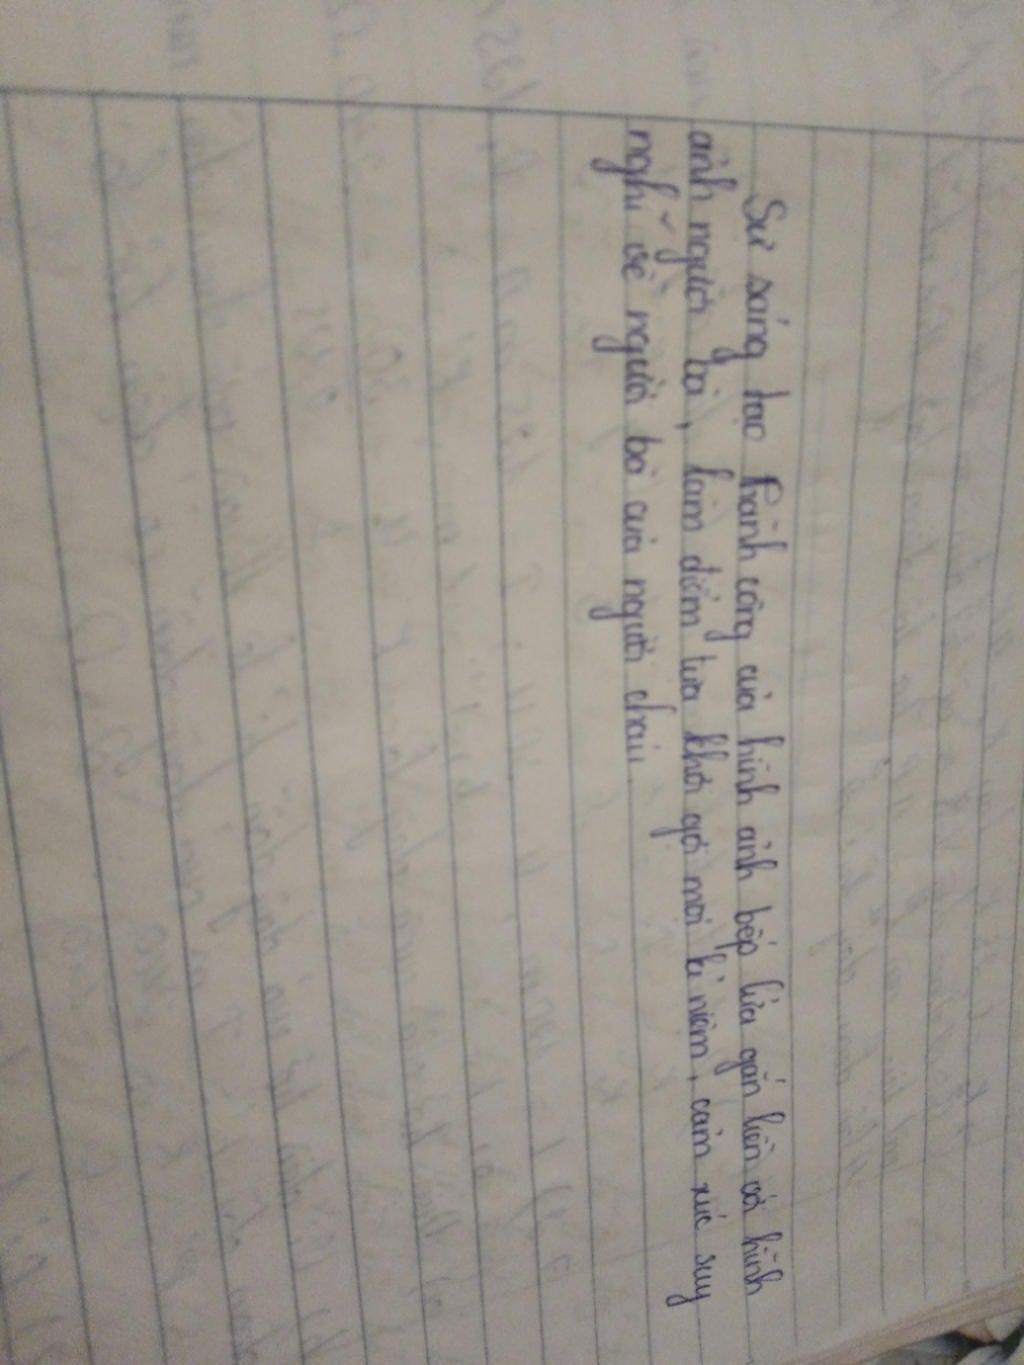 Sự sáng tạo thành công của hình ảnh bếp lửa gắn liền với hình
ảnh người bà, làm điểm tựa khơi gợi mọi kỉ niệm, cảm xúc suy
nghĩ về người bà của người cháu.